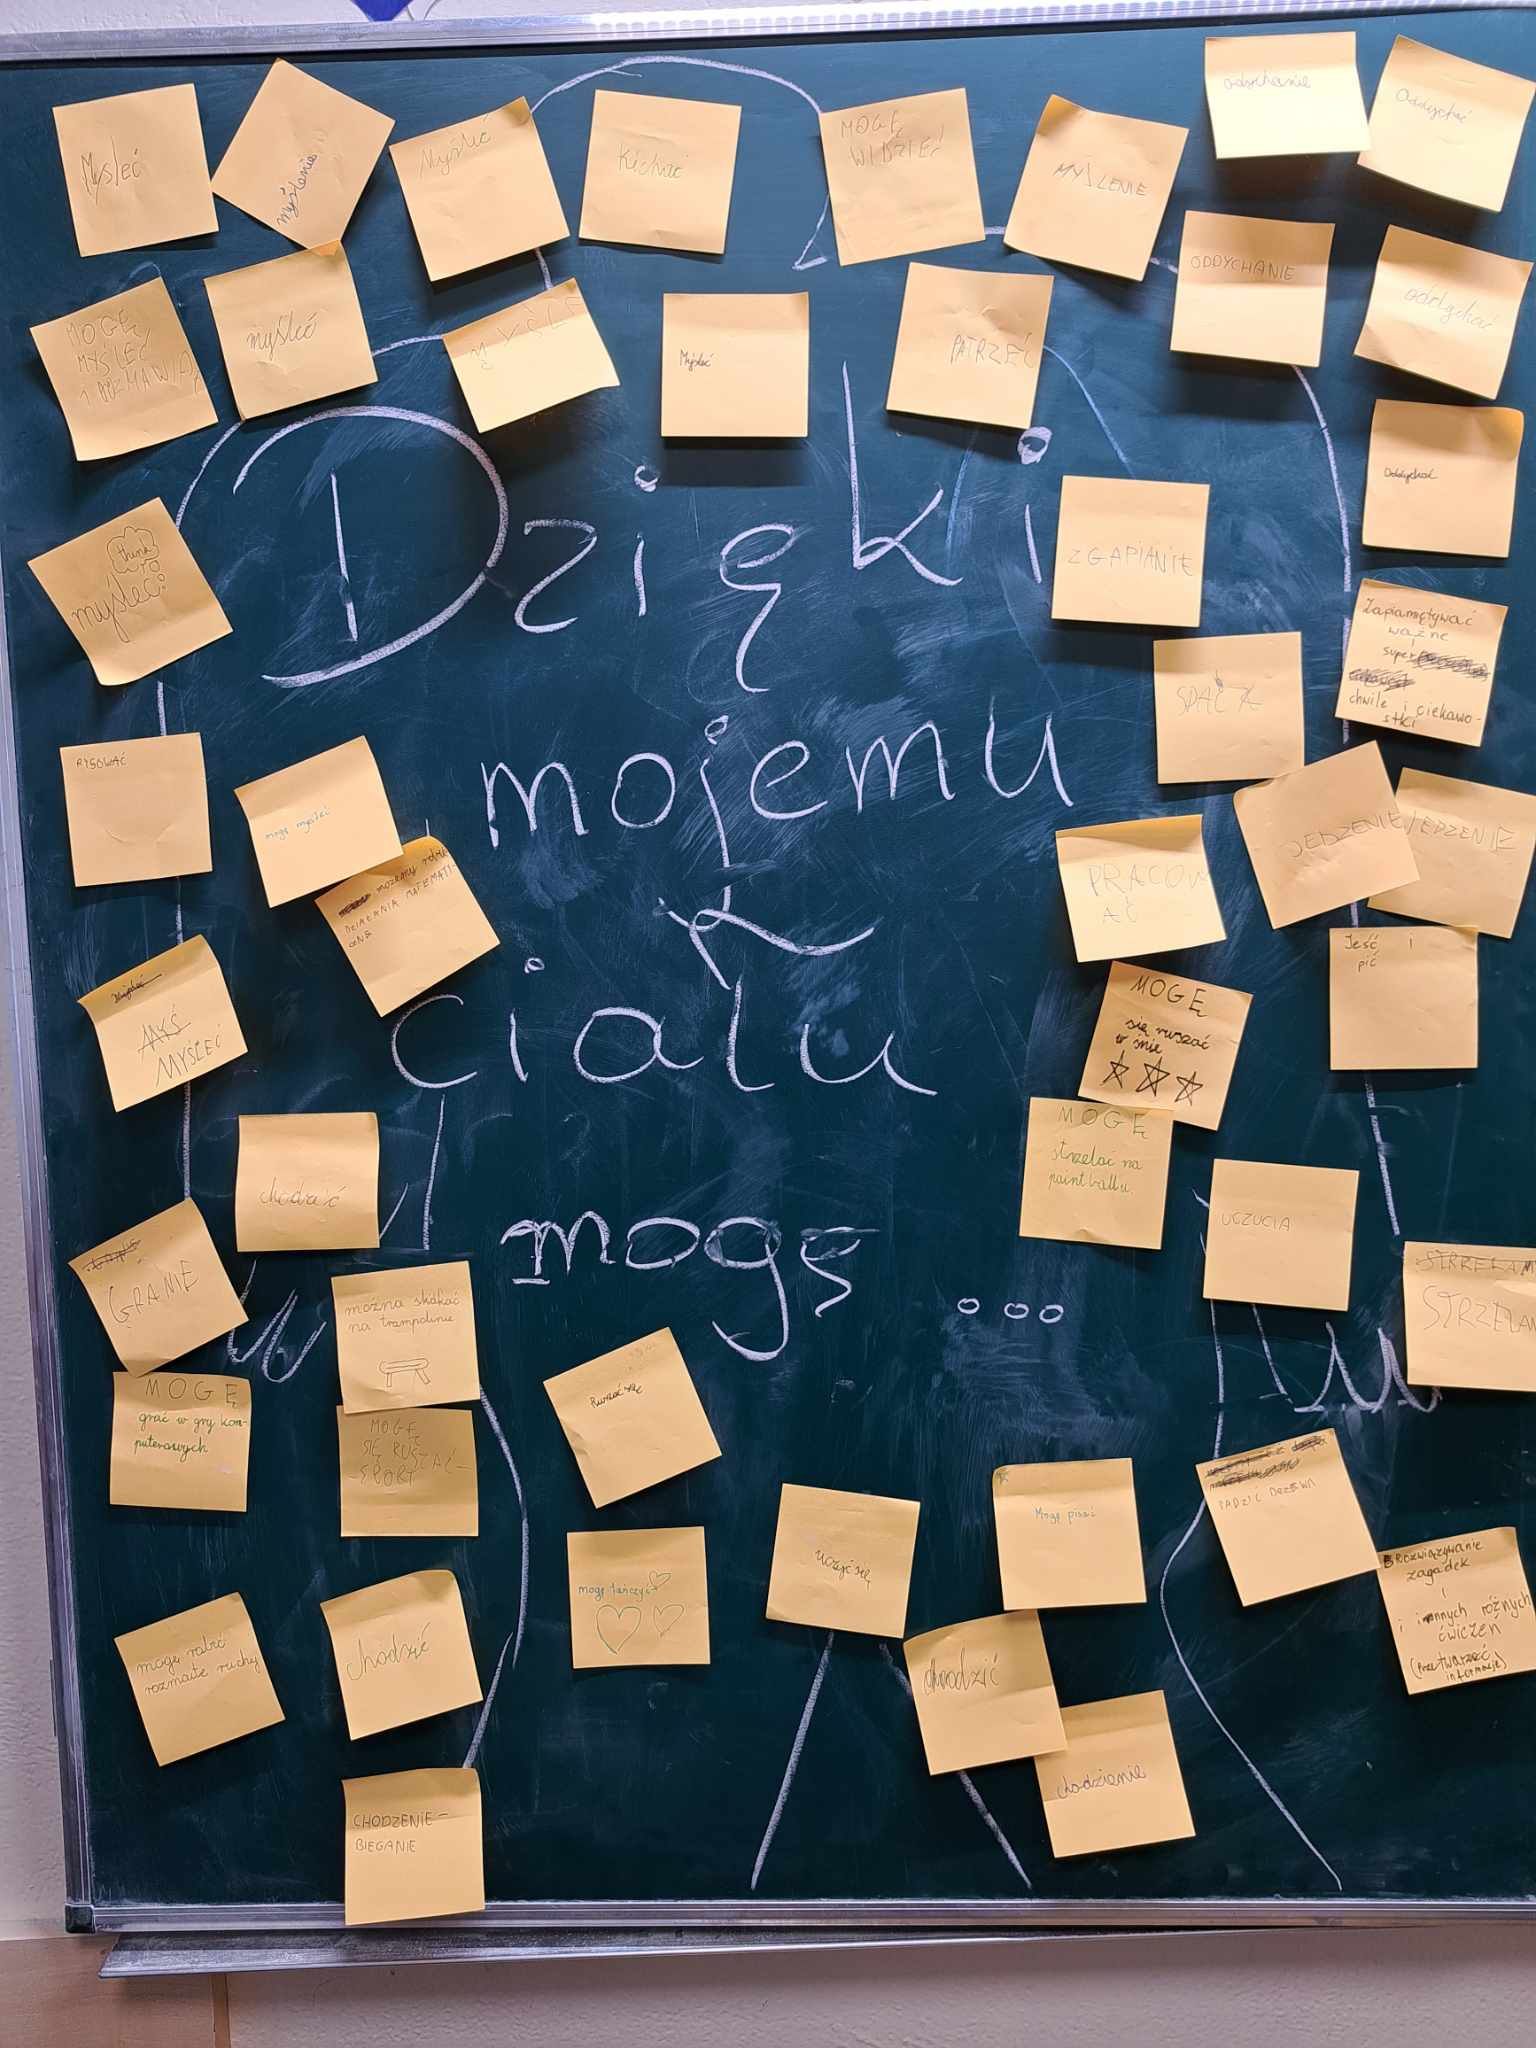 Dzięki
mojemu
ciału
mogę ...
Mysleć
myślenie
Myślić
Kichać
MOGĘ
WIDZIEĆ
MYŚLENIE
oddychanie
Oddychać
MOGĘ
MYŚLEĆ
I
myśleć
Myśleć
PATRZEĆ
ODDYCHANIE
oddychać
Oddychać
think
myśleć
ZGAPIANIE
SPAĆ
Zapamiętywać
ważne
i
super
chwile i ciekawo-
stki
RYSOWAĆ
mogę myśleć
możemy robić
DZIAŁANIA MATEMATY-
CZNE
PRACOW
AĆ
JEDZENIE
JEDZENIE
Jeść i
pić
MYŚ
MYŚLEĆ
MOGĘ
się ruszać
w śnie
MOGĘ
strzelać na
paintballu
chodzić
UCZUCIA
GRANIE
można skakać
na trampolinie
STRZELAN
MOGĘ
grać w gry kom-
puterowych
MOGĘ
SIĘ RUSZAĆ -
SPORT
Ruszać się
mogę tańczyć
uczyć się
Mogę pisać
SADZIĆ DRZEWA
Rozwiązywanie
zagadek
i
i innych różnych
ćwiczeń
(przetwarzać
informacje)
mogę robić
rozmaite ruchy
chodzić
chodzić
chodzienie
CHODZENIE -
BIEGANIE